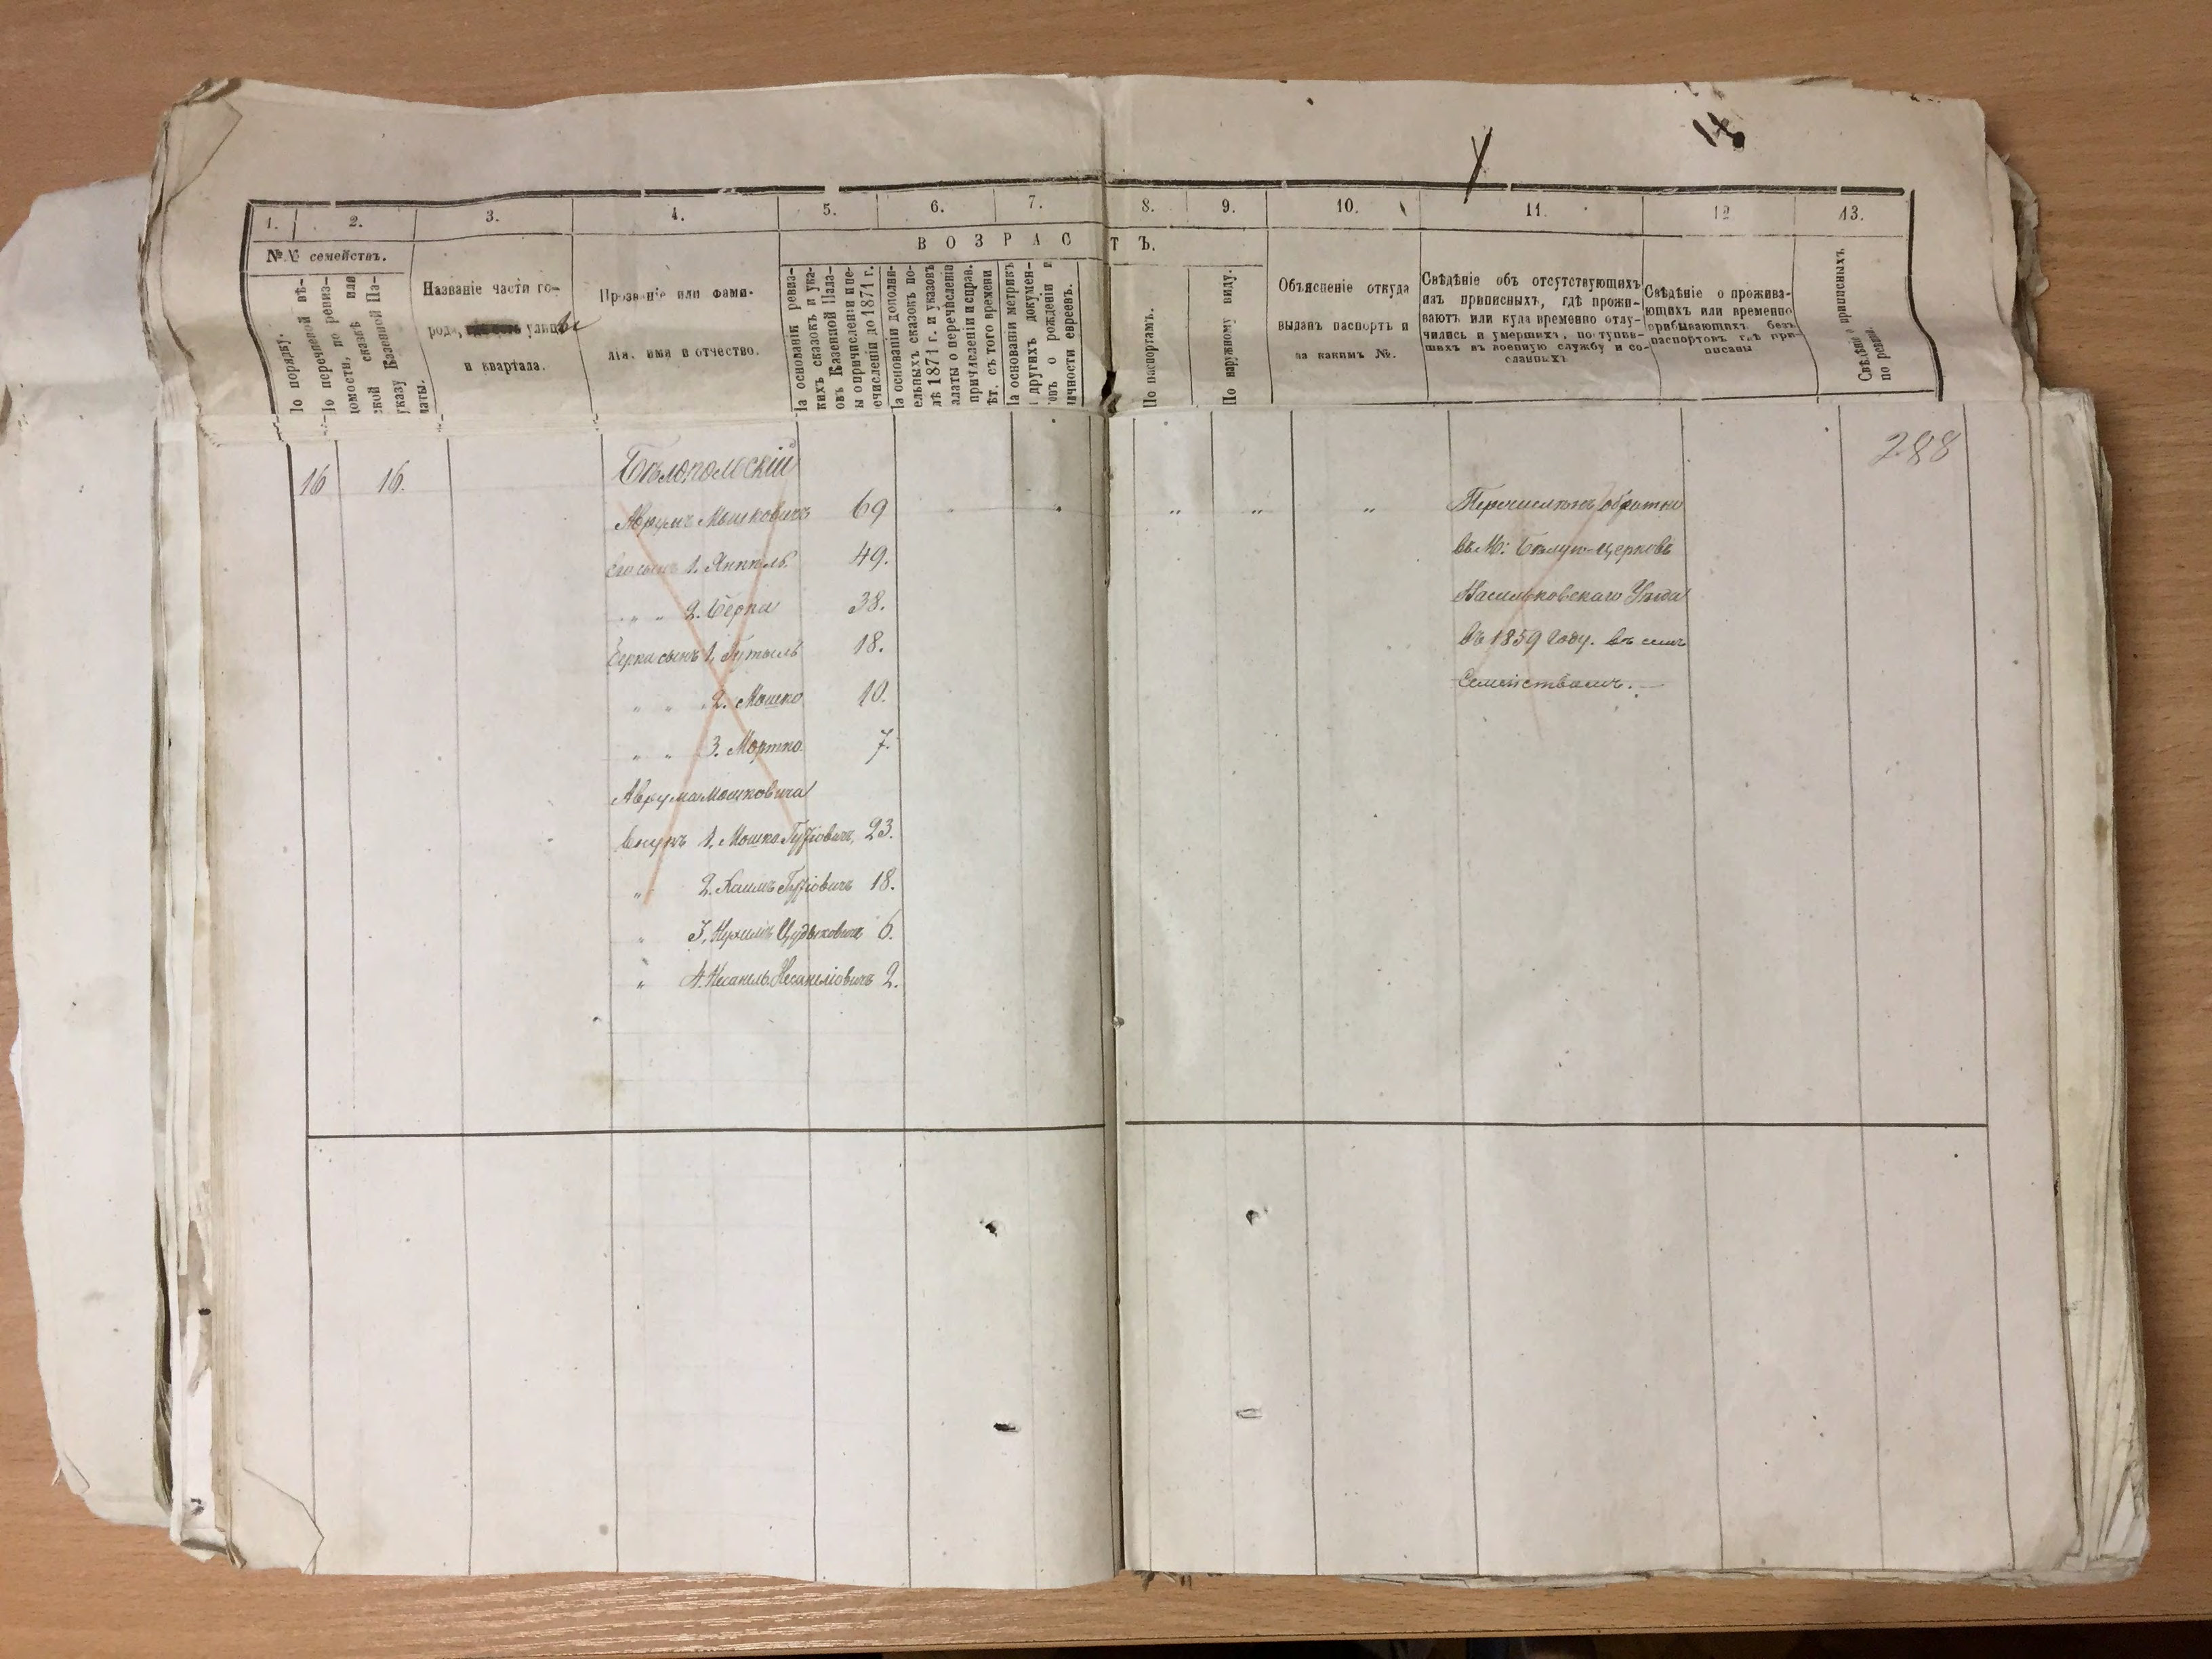 1. 2. 3. 4. 5. 6. 7. 8. 9. 10. 11. 12 13.
№№ семействъ.
В О З Р А С Т Ъ.
По порядку.
По перечневой вѣ-
домости, по ревиз-
ской сказкѣ или
указу Казенной Па-
латы.
Названіе части го-
рода, улицы
и квартала.
Прозваніе или фами-
лія, имя и отчество.
На основаніи ревиз-
скихъ сказокъ и ука-
зовъ Казенной Пала-
ты о причисленіи и пе-
речисленіи до 1871 г.
На основаніи дополни-
тельныхъ сказокъ по-
слѣ 1871 г. и указовъ
палаты о перечисленіи
причисленіи и справ.
лѣт. съ того времени
На основаніи метрикъ
и другихъ докумен-
товъ о рожденіи и
личности евреевъ.
По паспортамъ.
По наружному виду.
Объясненіе откуда
выданъ паспортъ и
за какимъ №.
Свѣдѣніе объ отсутствующихъ
изъ приписныхъ, гдѣ прожи-
ваютъ или куда временно отлу-
чились и умершихъ, поступив-
шихъ въ военную службу и со-
сланныхъ
Свѣдѣніе о прожива-
ющихъ или временно
прибывающихъ безъ
паспортовъ гдѣ при-
писаны
Свѣдѣніе о приписныхъ
по ревизіи.
288
16 16. Бѣлопольскій
Аврумъ Мошковичъ 69 " " " Перечисленъ обратно
Его сынъ 1. Янкель 49. въ М: Бѣлую-церковь
" " 2. Берка 38. Васильковскаго Уѣзда
Берка сынъ 1. 18. въ 1859 году. въ симъ
" " 2. Мошко 10. Семействомъ.
" " 3. Мортко 7.
Аврума Мошковича
Внукъ 1. Мошко 23.
" 2. Хаимъ 18.
" 3. Нухимъ 6.
" 4. 2.